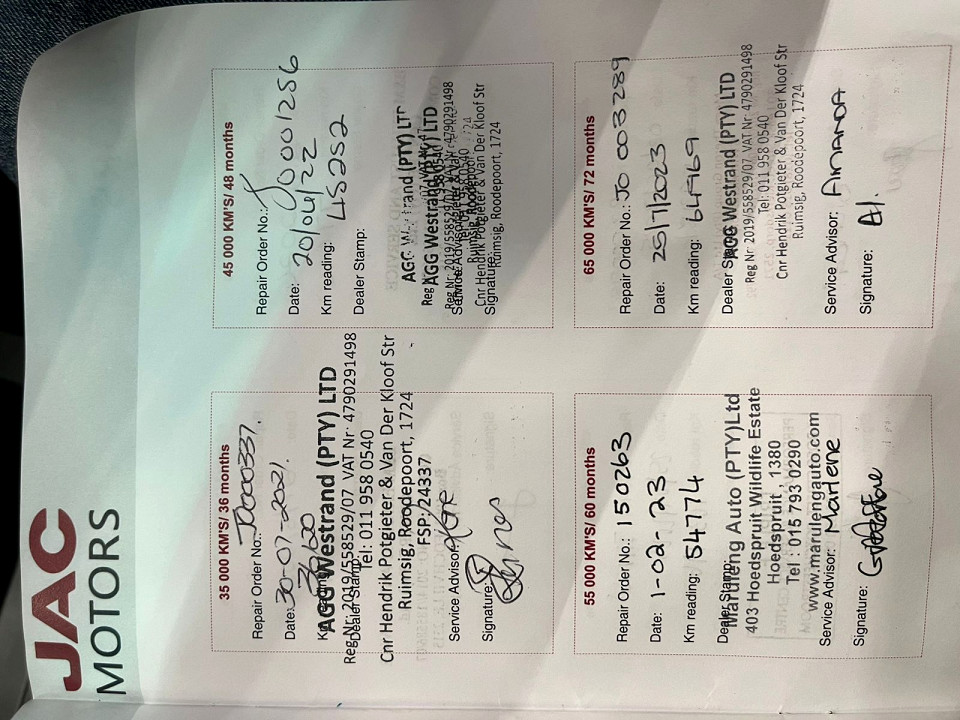 JAC
MOTORS
35 000 KM'S/ 36 months
Repair Order No.: J0000337.
Date: 30-07-2021.
AGG Westrand (PTY) LTD
Reg Nr: 2019/558529/07 VAT Nr: 4790291498
Dealer Stamp:
Tel: 011 958 0540
Cnr Hendrik Potgieter & Van Der Kloof Str
Ruimsig, Roodepoort, 1724
FSP:/24337
Service Advisor:
Signature:
45 000 KM'S/ 48 months
Repair Order No.: J0001256
Date: 20/04/22
Km reading: 45252
Dealer Stamp:
AGG Westrand (PTY) LTD
AGG Westrand (PTY) LTD
Reg Nr: 2019/558529/07 VAT Nr: 4790291498
Service Advisor:
Cnr Hendrik Potgieter & Van Der Kloof Str
Signature:
Ruimsig, Roodepoort, 1724
55 000 KM'S/ 60 months
Repair Order No.: 150263
Date: 1-02-23
Km reading: 54774
Dealer Stamp:
Maruleng Auto (PTY)Ltd
403 Hoedspruit Wildlife Estate
Hoedspruit, 1380
Tel: 015 793 0290
www.marulengauto.com
Service Advisor: Marlene
Signature:
65 000 KM'S/ 72 months
Repair Order No.: JO 003289
Date: 25/7/2023
Km reading: 64969
Dealer Stamp:
AGG Westrand (PTY) LTD
Reg Nr: 2019/558529/07 VAT Nr: 4790291498
Tel: 011 958 0540
Cnr Hendrik Potgieter & Van Der Kloof Str
Ruimsig, Roodepoort, 1724
Service Advisor: AMANDA
Signature: A1.